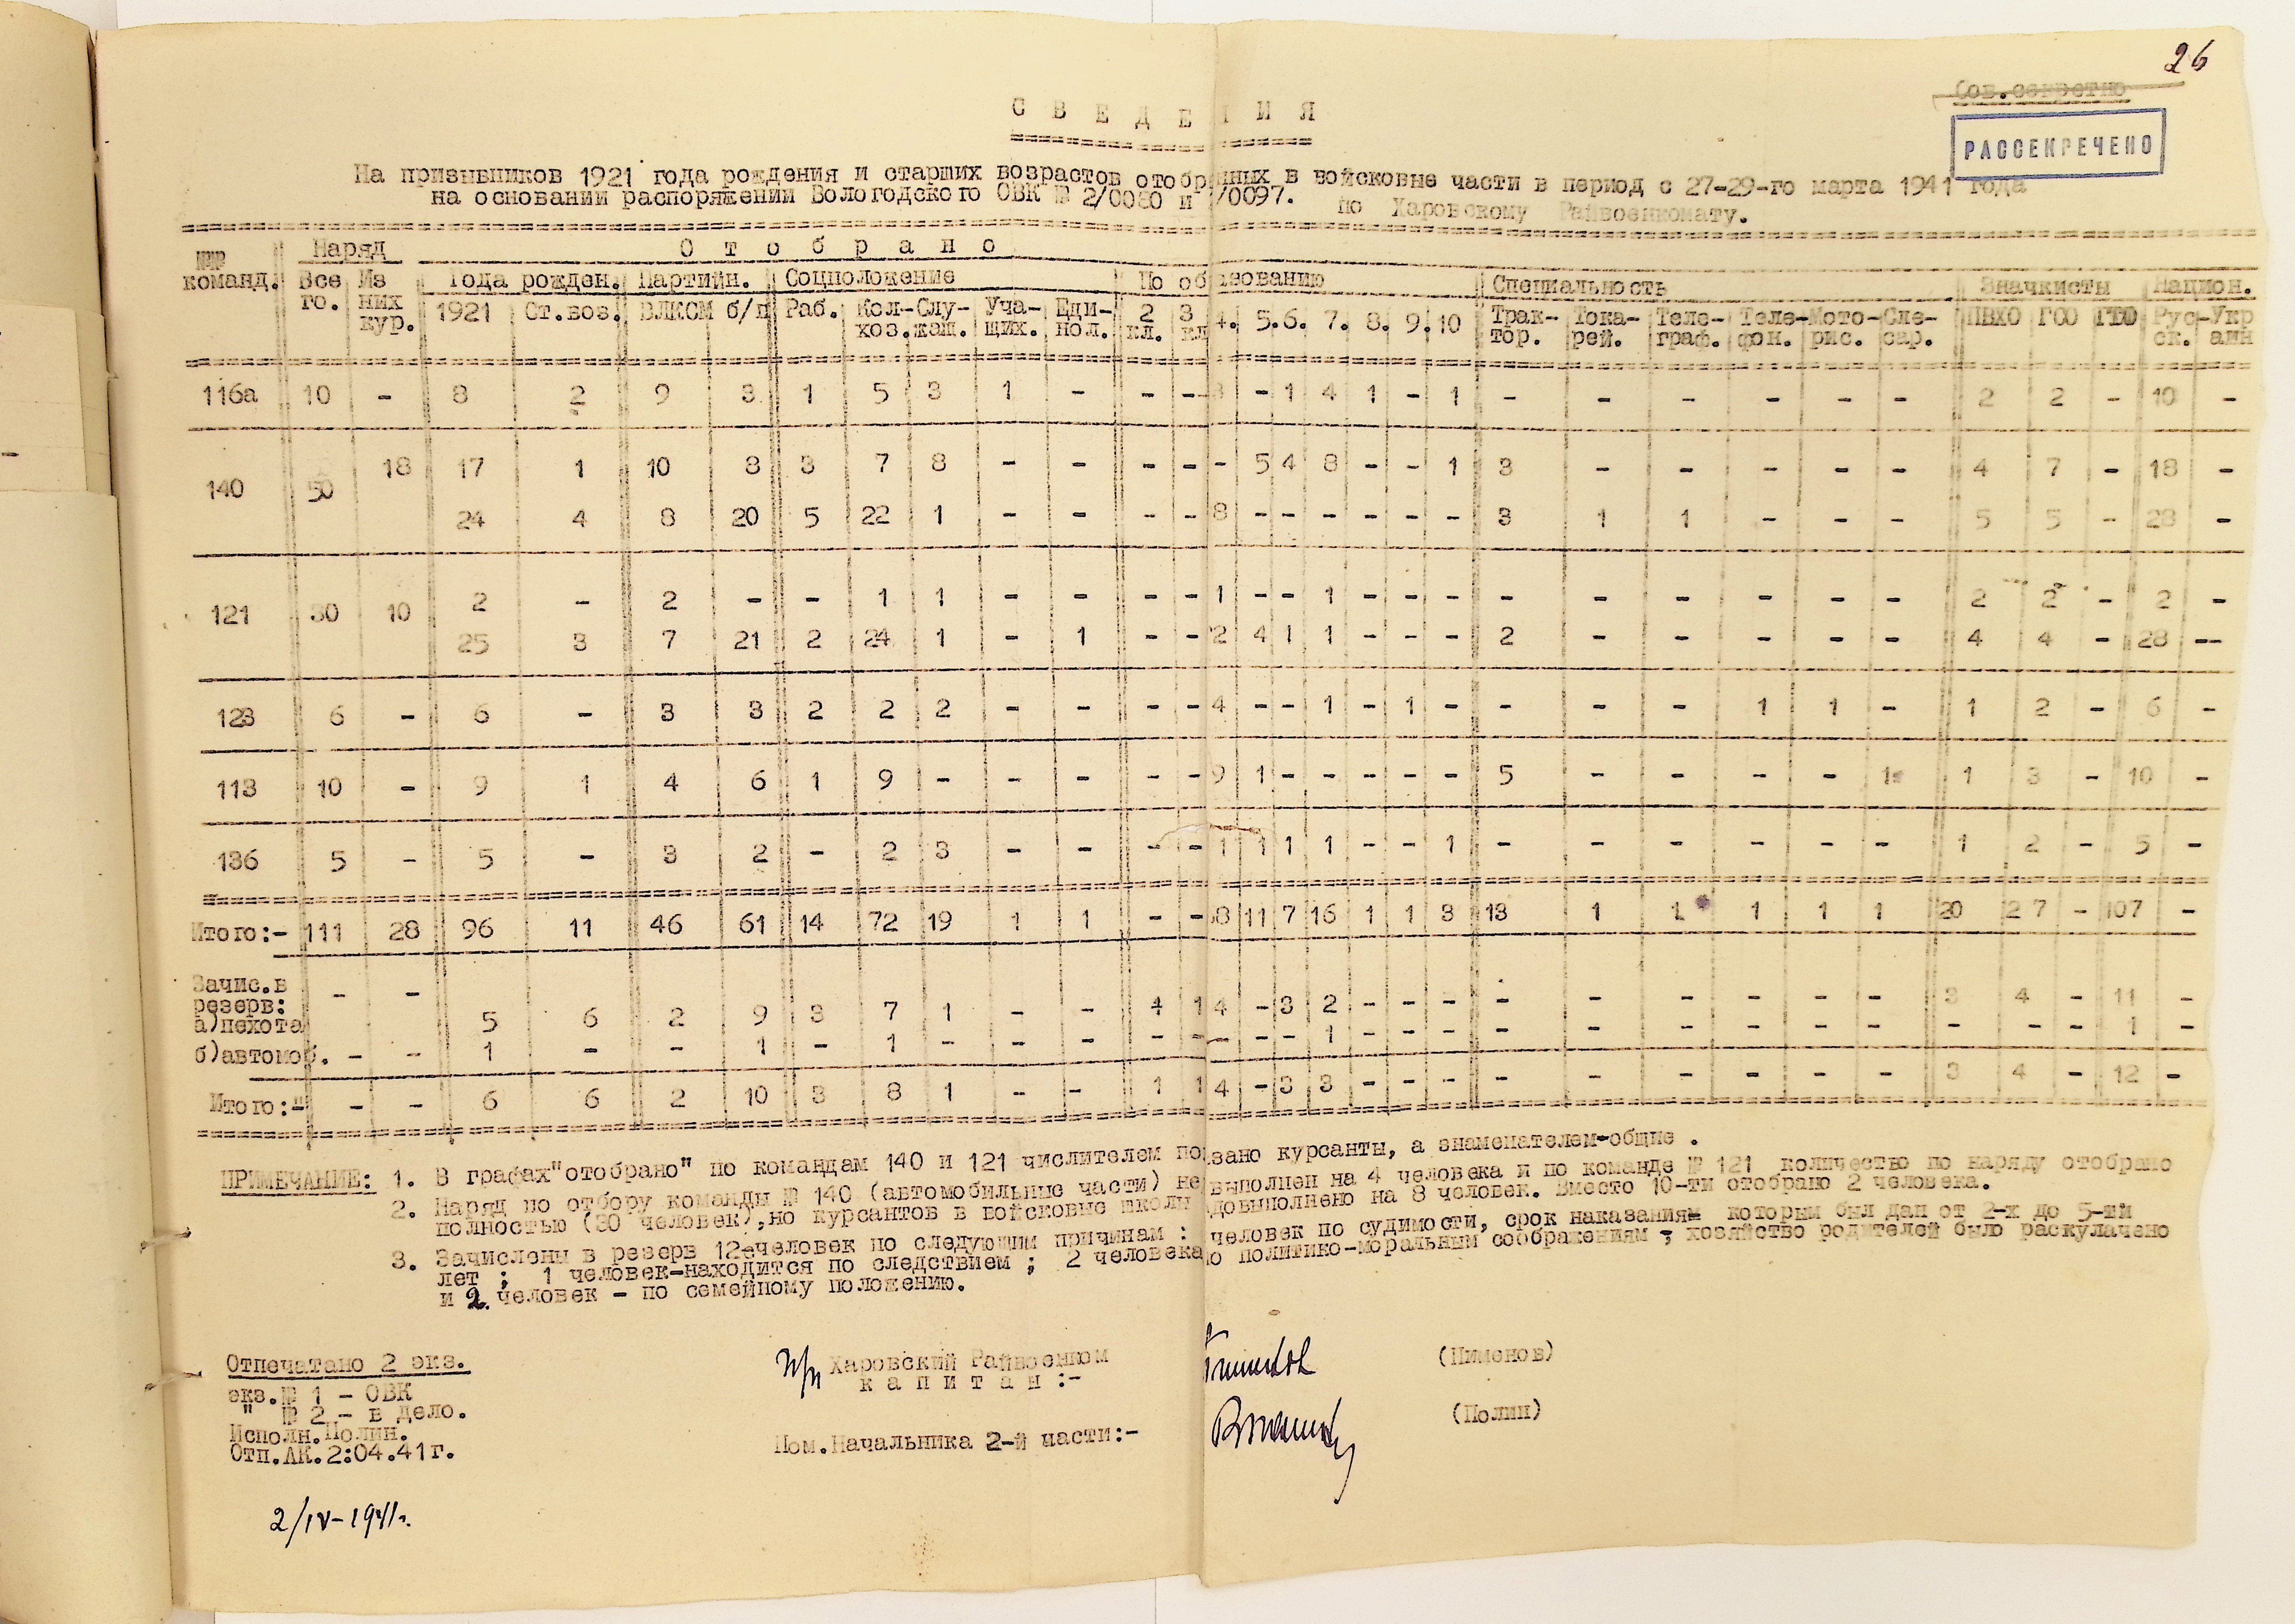 26
Сов.секретно
РАССЕКРЕЧЕНО
С В Е Д Е И Я
На призывников 1921 года рождения и старших возрастов отобр нных в войсковые части в период с 27-29-го марта 1941 года
на основании распоряжении Вологодского ОВК № 2/0080 и /0097. по Харовскому Райвоенкомату.
№№ команд. Наряд О т о б р а н о
Все го. Из них кур. Года рожден. Партийн. Соцположение По об зованию Специальность Значкисты Национ.
1921 Ст.воз. ВЛКСМ б/п Раб. Кол-хоз. Слу-жащ. Уча-щих. Еди-нол. 2 кл. 3 кл 4. 5. 6. 7. 8. 9. 10 Трак-тор. Тока-рей. Теле-граф. Теле-фон. Мото-рис. Сле-сар. ПВХО ГСО ГТО Рус-ск. Укр аин
116а 10 - 8 2 9 3 1 5 3 1 - - - 3 - 1 4 1 - 1 - - - - - - 2 2 - 10 -
140 50 18 17 1 10 8 3 7 8 - - - - - 5 4 8 - - 1 3 - - - - - 4 7 - 18 -
24 4 8 20 5 22 1 - - - - 8 - - - - - - 3 1 1 - - - 5 5 - 28 -
121 30 10 2 - 2 - - 1 1 - - - - 1 - - 1 - - - - - - - - - 2 2 - 2 -
25 3 7 21 2 24 1 - 1 - - 2 4 1 1 - - - 2 - - - - - 4 4 - 28 --
123 6 - 6 - 3 3 2 2 2 - - - - 4 - - 1 - 1 - - - - 1 1 - 1 2 - 6 -
113 10 - 9 1 4 6 1 9 - - - - - 9 1 - - - - - 5 - - - - 1 1 3 - 10 -
136 5 - 5 - 3 2 - 2 3 - - - - 1 1 1 1 - - 1 - - - - - - 1 2 - 5 -
Итого:- 111 28 96 11 46 61 14 72 19 1 1 - - 8 11 7 16 1 1 3 13 1 1 1 1 1 20 27 - 107 -
Зачис.в
резерв:
а)пехота - - 5 6 2 9 3 7 1 - - 1 1 4 - 3 2 - - - - - - - - - 3 4 - 11 -
б)автомоб. - - 1 - - 1 - 1 - - - - - - - - 1 - - - - - - - - - - - - 1 -
Итого:- - - 6 6 2 10 3 8 1 - - 1 1 4 - 3 3 - - - - - - - - - 3 4 - 12 -
ПРИМЕЧАНИЕ: 1. В графах"отобрано" по командам 140 и 121 числителем по зано курсанты, а знаменателем-общие .
2. Наряд по отбору команды № 140 (автомобильные части) не выполнен на 4 человека и по команде № 121 количество по наряду отобрано
полностью (30 человек),но курсантов в войсковые школы довыполнено на 8 человек. Вместо 10-ти отобрано 2 человека.
3. Зачислены в резерв 12-человек по следующим причинам : человек по судимости, срок наказания которым был дан от 2-х до 5-ти
лет ; 1 человек-находится по следствием ; 2 человека о политико-моральным соображениям ; хозяйство родителей было раскулачено
и 2. человек - по семейному положению.
Отпечатано 2 экз.
экз.№ 1 - ОВК
" № 2 - в дело.
Исполн.Полин.
Отп.АК.2:04.41г.
2/IV-1941г.
Харовский Райвоенком
к а п и т а н :- (Пименов)
Пом.Начальника 2-й части:- (Полин)